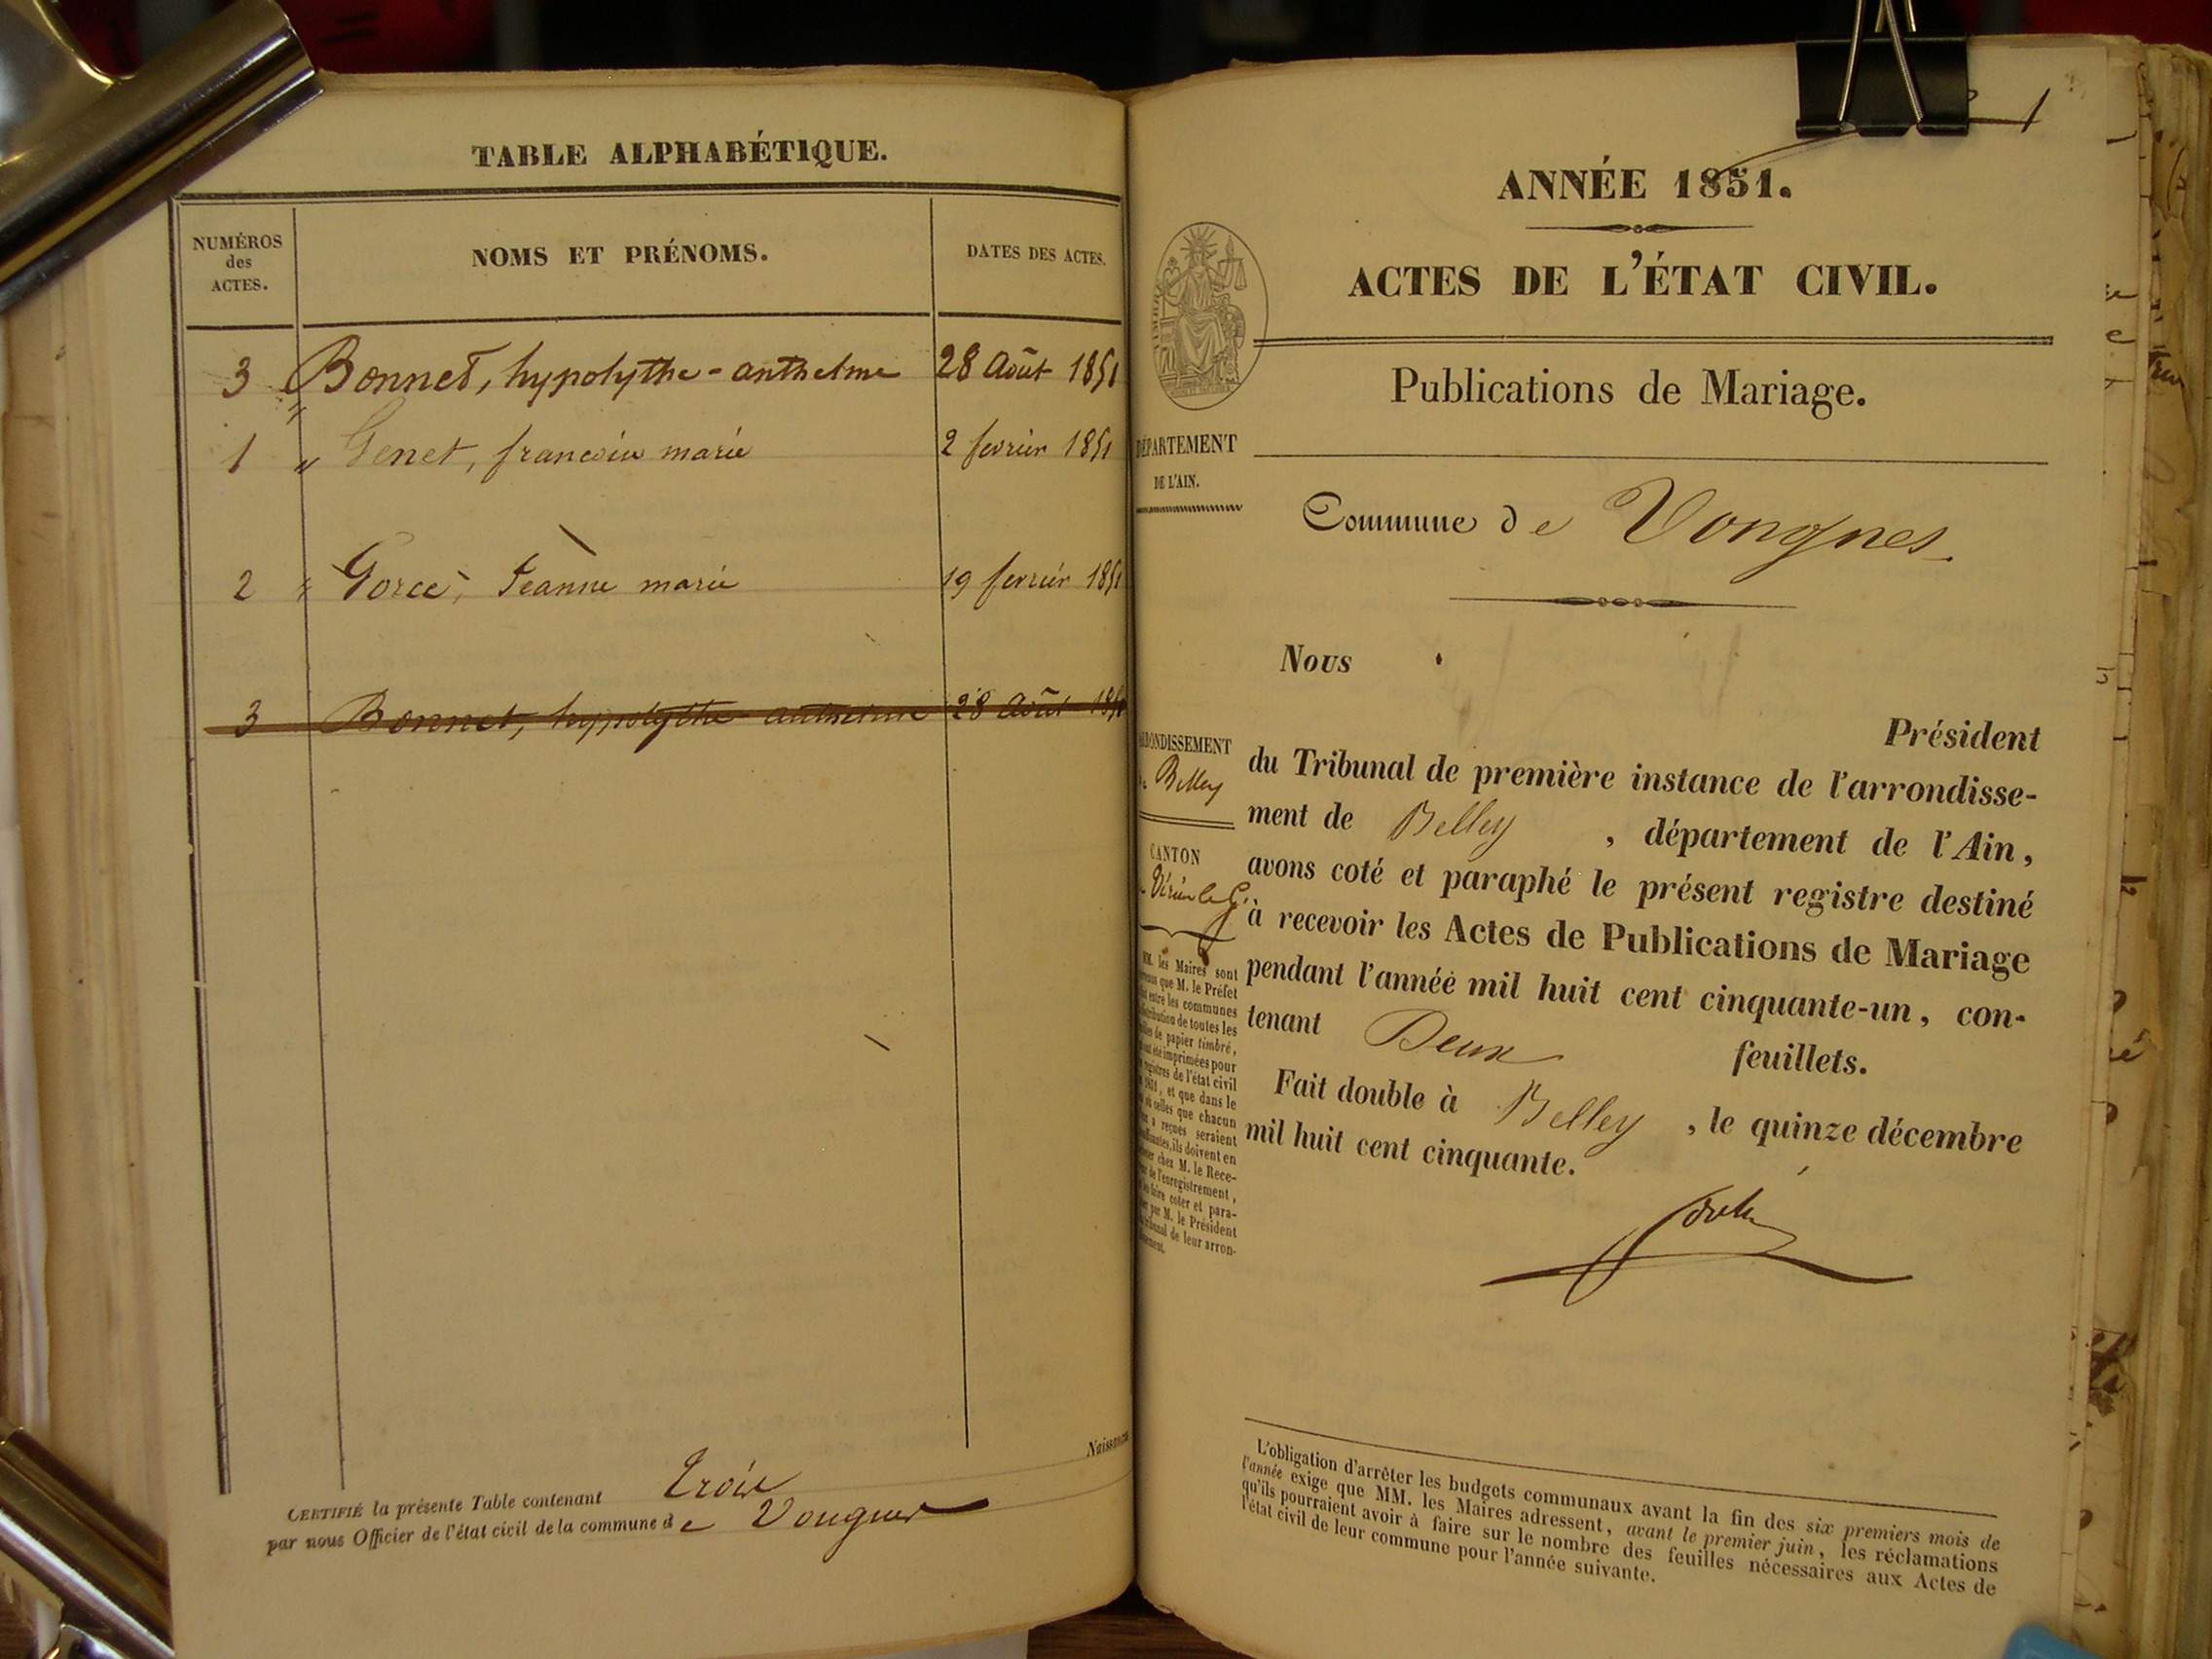 TABLE ALPHABÉTIQUE.
NUMÉROS
des
ACTES.
NOMS ET PRÉNOMS.
DATES DES ACTES.
3 Bonnet, hypolythe-anthelme 28 Août 1851
1 " Genet, francoise marie 2 fevrier 1851
2 " Gorce, Jeanne marie 19 fevrier 1851
3 Bonnet, hyppolythe anthelme 28 Août 1851
CERTIFIÉ la présente Table contenant trois
par nous Officier de l'état civil de la commune de Vongnes
ANNÉE 1851.
ACTES DE L'ÉTAT CIVIL.
TIMBRE
Publications de Mariage.
DÉPARTEMENT
DE L'AIN.
Commune de Vongnes
Nous
Président
du Tribunal de première instance de l'arrondisse-
ment de Belley , département de l'Ain,
avons coté et paraphé le présent registre destiné
à recevoir les Actes de Publications de Mariage
pendant l'année mil huit cent cinquante-un, con-
tenant Deux feuillets.
Fait double à Belley , le quinze décembre
mil huit cent cinquante.
ARRONDISSEMENT
Belley
CANTON
MM. les Maires sont
que M. le Préfet
entre les communes
de toutes les
de papier timbré,
été imprimées pour
registres de l'état civil
1851, et que dans le
où celles que chacun
a reçues seraient
ils doivent en
chez M. le Rece-
de l'enregistrement,
faire coter et para-
par M. le Président
de leur arron-
L'obligation d'arrêter les budgets communaux avant la fin des six premiers mois de
l'année exige que MM. les Maires adressent, avant le premier juin, les réclamations
qu'ils pourraient avoir à faire sur le nombre des feuilles nécessaires aux Actes de
l'état civil de leur commune pour l'année suivante.